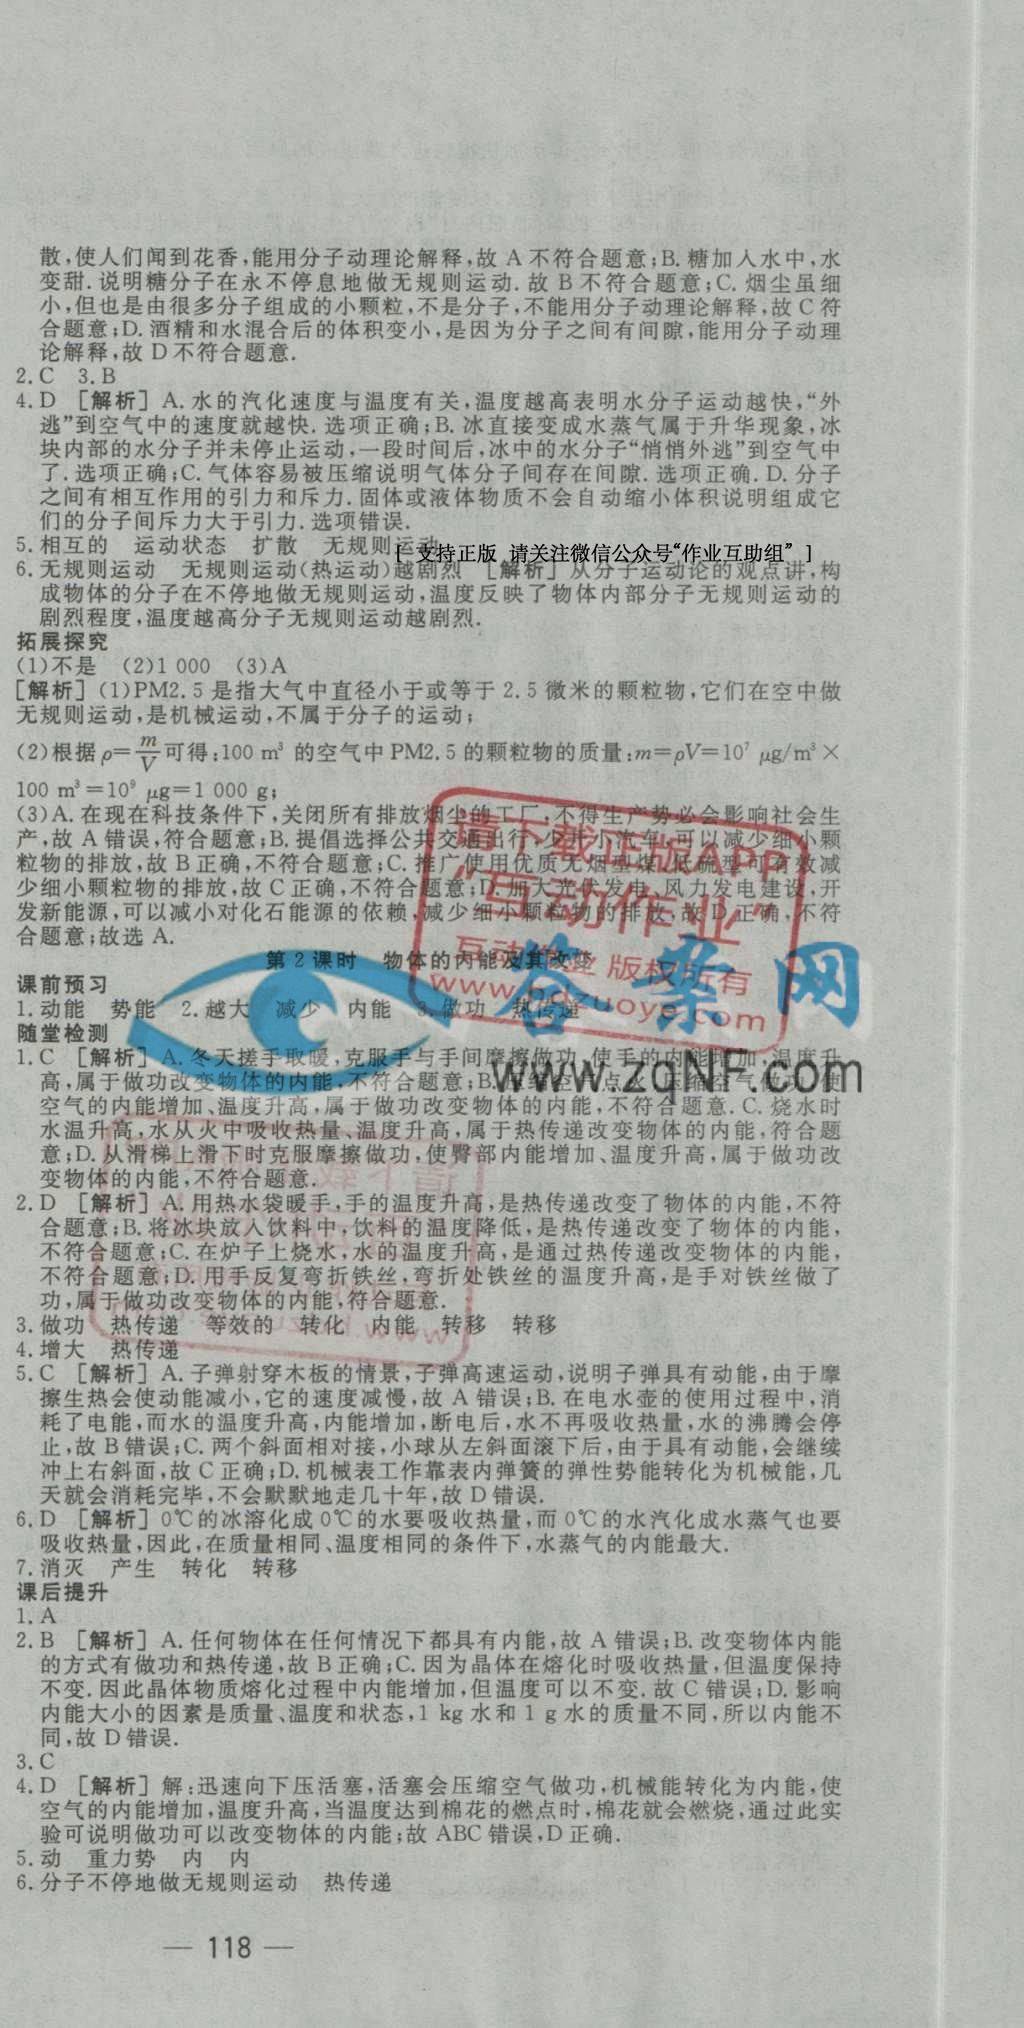 散,使人们闻到花香,能用分子动理论解释,故 A 不符合题意;B. 糖加入水中,水
变甜. 说明糖分子在永不停息地做无规则运动. 故 B 不符合题意;C. 烟尘虽细
小,但也是由很多分子组成的小颗粒,不是分子,不能用分子动理论解释,故 C 符
合题意;D. 酒精和水混合后的体积变小,是因为分子之间有间隙,能用分子动理
论解释,故 D 不符合题意.
2. C 3. B
4. D [解析] A. 水的汽化速度与温度有关,温度越高表明水分子运动越快,“外
逃”到空气中的速度就越快. 选项正确;B. 冰直接变成水蒸气属于升华现象,冰
块内部的水分子并未停止运动,一段时间后,冰中的水分子“悄悄外逃”到空气中
了. 选项正确;C. 气体容易被压缩说明气体分子间存在间隙. 选项正确. D. 分子
之间有相互作用的引力和斥力. 固体或液体物质不会自动缩小体积说明组成它
们的分子间斥力大于引力. 选项错误.
5. 相互的 运动状态 扩散 无规则运动
[ 支持正版 请关注微信公众号“作业互助组” ]
6. 无规则运动 无规则运动(热运动)越剧烈 [解析] 从分子运动论的观点讲,构
成物体的分子在不停地做无规则运动,温度反映了物体内部分子无规则运动的
剧烈程度,温度越高分子无规则运动越剧烈.
拓展探究
(1)不是 (2)1 000 (3)A
[解析] (1)PM2.5 是指大气中直径小于或等于 2.5 微米的颗粒物,它们在空中做
无规则运动,是机械运动,不属于分子的运动;
(2)根据 ρ=m/V 可得:100 m³ 的空气中 PM2.5 的颗粒物的质量:m=ρV=10⁷ μg/m³×
100 m³=10⁹ μg=1 000 g;
(3)A. 在现在科技条件下,关闭所有排放烟尘的工厂,不得生产势必会影响社会生
产,故 A 错误,符合题意;B. 提倡选择公共交通出行,少开小汽车,可以减少细小颗
粒物的排放,故 B 正确,不符合题意;C. 推广使用优质无烟型煤,低硫型可有效减
少细小颗粒物的排放,故 C 正确,不符合题意;D. 加大光伏发电、风力发电建设,开
发新能源,可以减小对化石能源的依赖,减少细小颗粒物的排放,故 D 正确,不符
合题意;故选 A.
第 2 课时 物体的内能及其改变
课前预习
1. 动能 势能 2. 越大 减少 内能 3. 做功 热传递
随堂检测
1. C [解析] A. 冬天搓手取暖,克服手与手间摩擦做功,使手的内能增加、温度升
高,属于做功改变物体的内能,不符合题意;B. 压缩空气点火,压缩空气做功,使
空气的内能增加、温度升高,属于做功改变物体的内能,不符合题意. C. 烧水时
水温升高,水从火中吸收热量、温度升高,属于热传递改变物体的内能,符合题
意;D. 从滑梯上滑下时克服摩擦做功,使臀部内能增加、温度升高,属于做功改
变物体的内能,不符合题意.
2. D [解析] A. 用热水袋暖手,手的温度升高,是热传递改变了物体的内能,不符
合题意;B. 将冰块放入饮料中,饮料的温度降低,是热传递改变了物体的内能,
不符合题意;C. 在炉子上烧水,水的温度升高,是通过热传递改变物体的内能,
不符合题意;D. 用手反复弯折铁丝,弯折处铁丝的温度升高,是手对铁丝做了
功,属于做功改变物体的内能,符合题意.
3. 做功 热传递 等效的 转化 内能 转移 转移
4. 增大 热传递
5. C [解析] A. 子弹射穿木板的情景,子弹高速运动,说明子弹具有动能,由于摩
擦生热会使动能减小,它的速度减慢,故 A 错误;B. 在电水壶的使用过程中,消
耗了电能,而水的温度升高,内能增加,断电后,水不再吸收热量,水的沸腾会停
止,故 B 错误;C. 两个斜面相对接,小球从左斜面滚下后,由于具有动能,会继续
冲上右斜面,故 C 正确;D. 机械表工作靠表内弹簧的弹性势能转化为机械能,几
天就会消耗完毕,不会默默地走几十年,故 D 错误.
6. D [解析] 0℃的冰溶化成 0℃的水要吸收热量,而 0℃的水汽化成水蒸气也要
吸收热量,因此,在质量相同、温度相同的条件下,水蒸气的内能最大.
7. 消灭 产生 转化 转移
课后提升
1. A
2. B [解析] A. 任何物体在任何情况下都具有内能,故 A 错误;B. 改变物体内能
的方式有做功和热传递,故 B 正确;C. 因为晶体在熔化时吸收热量,但温度保持
不变. 因此晶体物质熔化过程中内能增加,但温度可以不变. 故 C 错误;D. 影响
内能大小的因素是质量、温度和状态,1 kg 水和 1 g 水的质量不同,所以内能不
同,故 D 错误.
3. C
4. D [解析] 解:迅速向下压活塞,活塞会压缩空气做功,机械能转化为内能,使
空气的内能增加,温度升高,当温度达到棉花的燃点时,棉花就会燃烧,通过此实
验可说明做功可以改变物体的内能;故 ABC 错误,D 正确.
5. 动 重力势 内 内
6. 分子不停地做无规则运动 热传递
— 118 —
请下载正版APP
“互动作业”
互动作业 版权所有
www.hdzuoye.com
答案网
www.zqNF.com